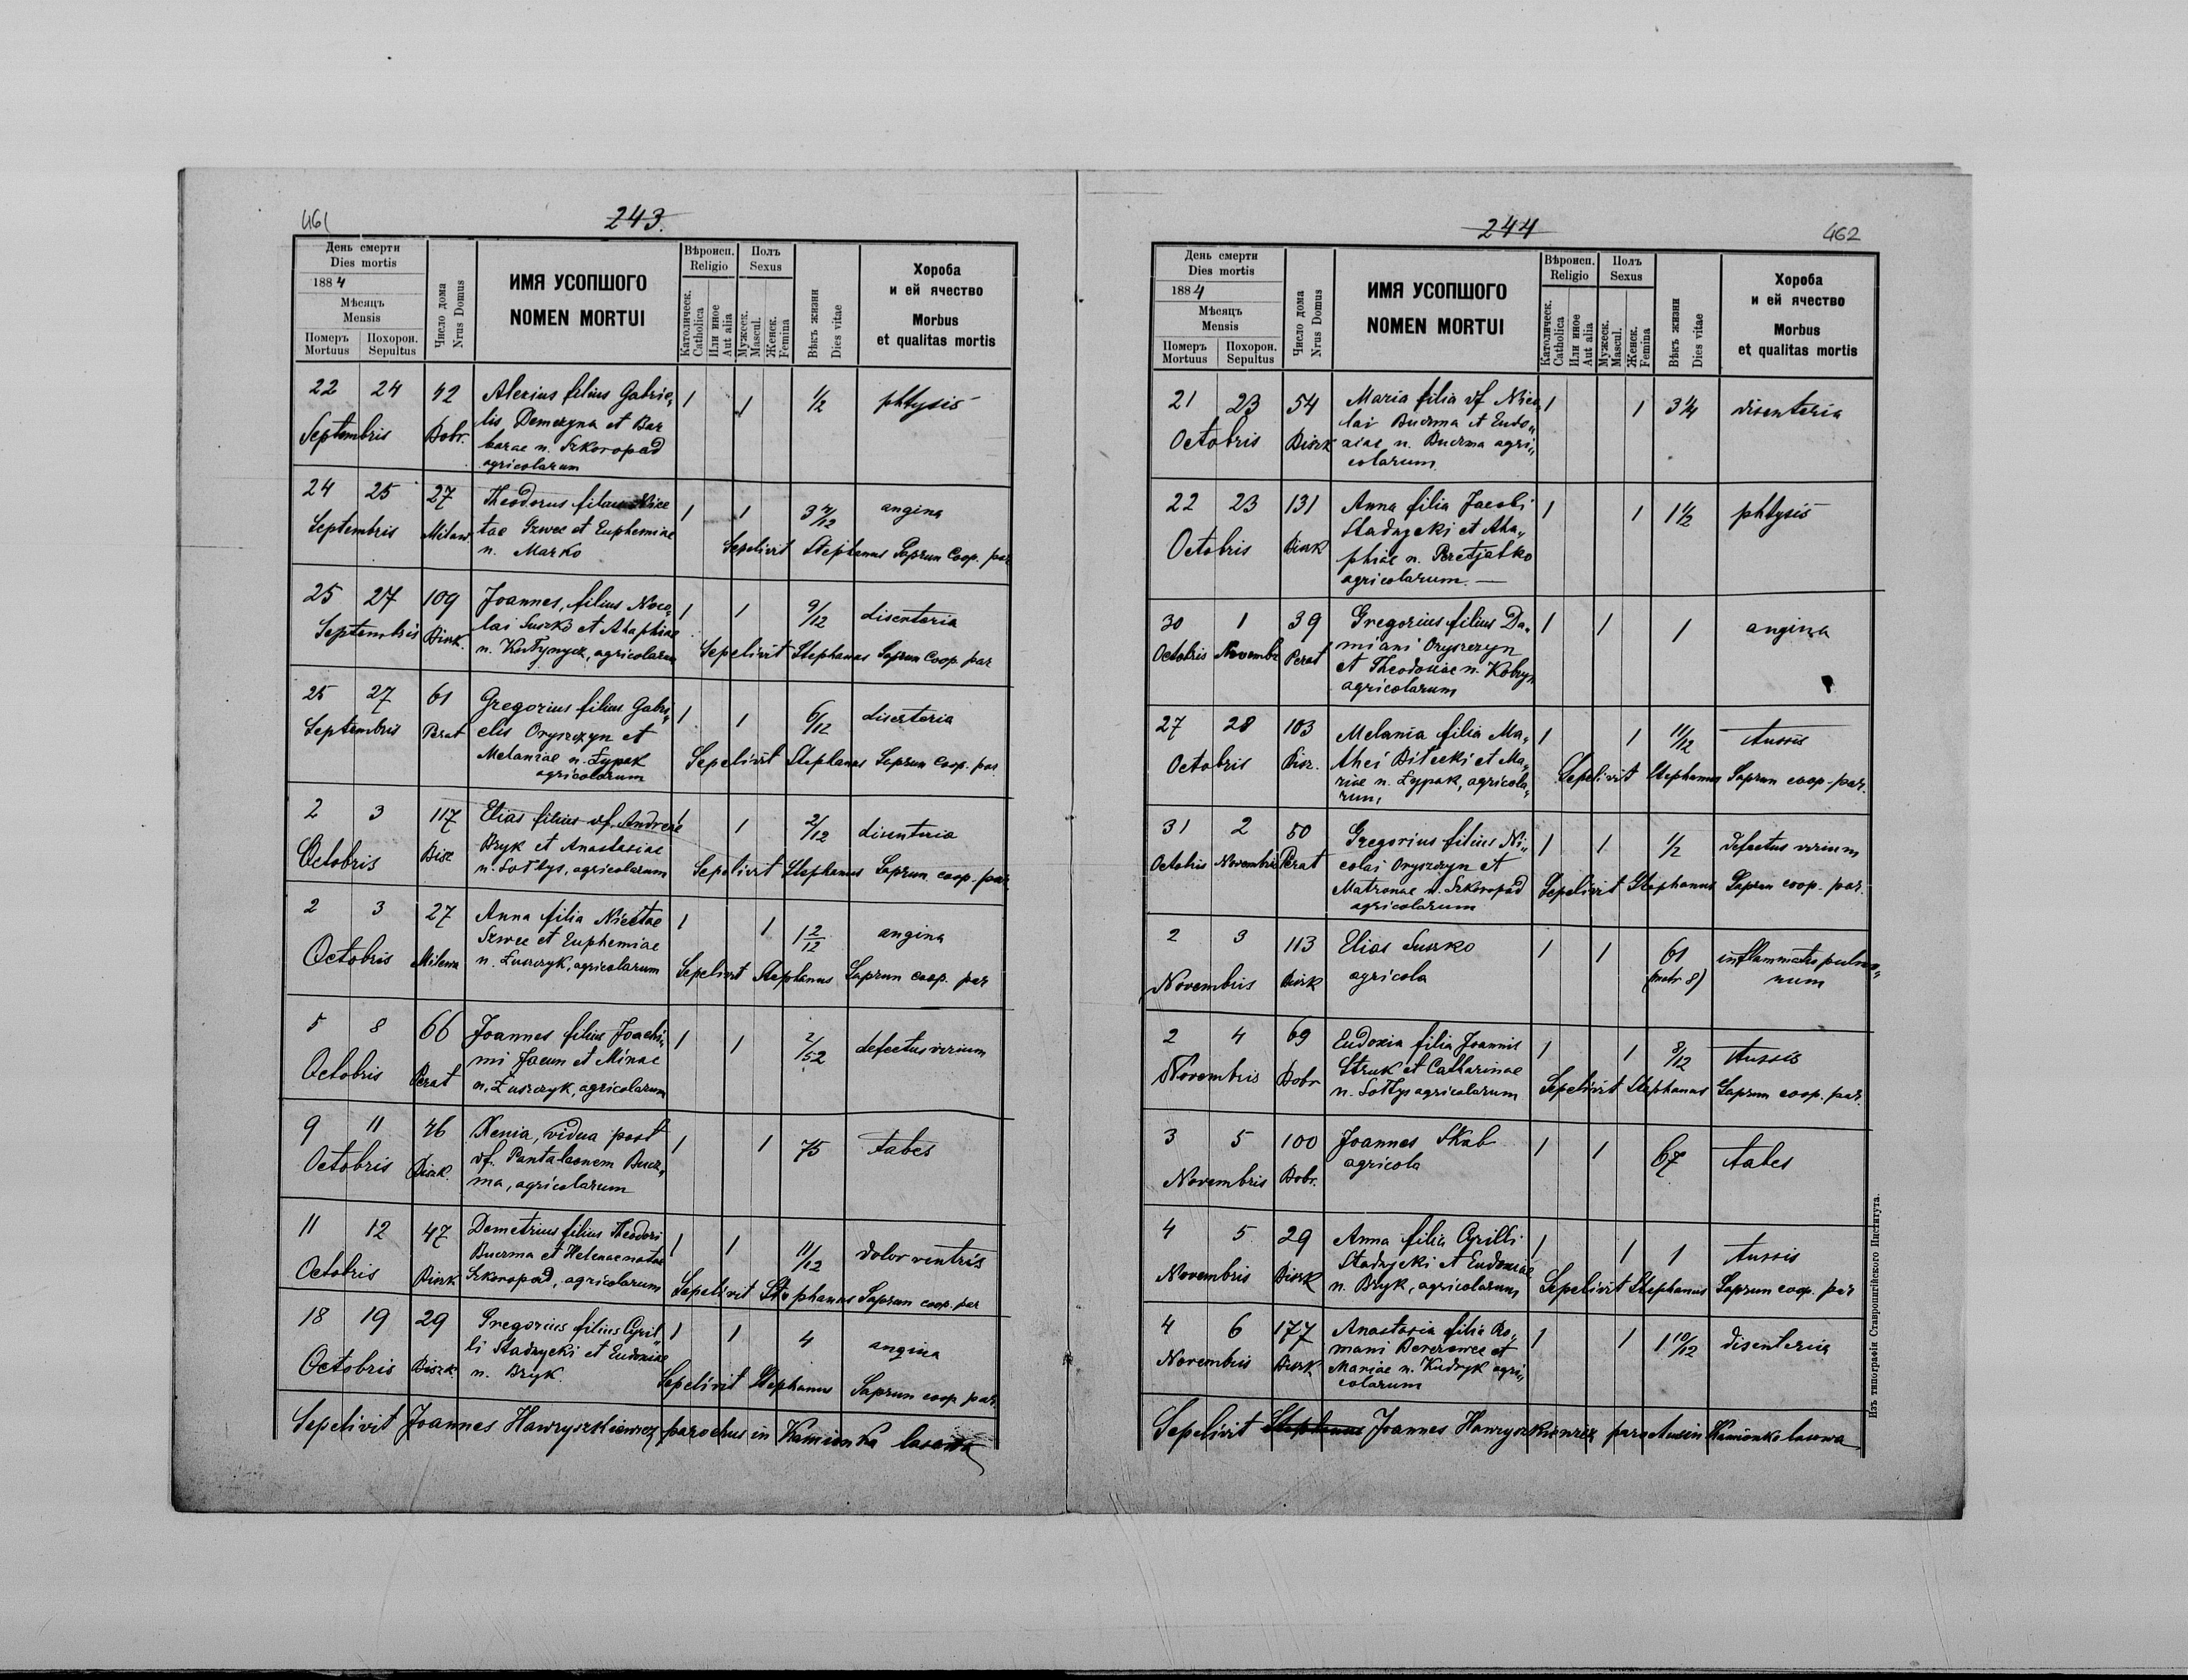 461
243.
День смерти
Dies mortis
1884
Мѣсяцъ
Mensis
Померъ
Mortuus
Похорон.
Sepultus
Число дома
Nrus Domus
ИМЯ УСОПШОГО
NOMEN MORTUI
Вѣроисп.
Religio
Католическ.
Catholica
Или иное
Aut alia
Полъ
Sexus
Мужеск.
Mascul.
Женск.
Femina
Вѣкъ жизни
Dies vitae
Хороба
и ей ячество
Morbus
et qualitas mortis
22 24 42 Alexius filius Gabrie„ 1 1 1/2 phtysis
Septembris Dobr. lis Demczyna et Bar
barae n. Szkoropad
agricolarum
24 25 27 Theodorus filius Nice 1 1 3 4/12 angina
Septembris Milaw tae Szwec et Euphemiae
n. Marko Sepelivit Stephanus Saprun Coop. par
25 27 109 Joannes, filius Nico„ 1 1 9/12 disenteria
Septembris Bisk. lai Suszko et Ahaphiae
n. Kutynycz, agricolarum Sepelivit Stephanus Saprun Coop. par
25 27 61 Gregorius filius Gabri„ 1 1 6/12 disenteria
Septembris Perat elis Oryszczyn et
Melaniae n. Łypak Sepelivit Stephanus Saprun Coop. par
agricolarum
2 3 117 Elias filius vf. Andreae 1 1 2/12 disenteria
Octobris Bisc Bryk et Anastasiae
n. Sołtys, agricolarum Sepelivit Stephanus Saprun coop. par.
2 3 27 Anna filia Nicetae 1 1 1 2/12 angina
Octobris Milawa Szwec et Euphemiae
n. Łuszczyk, agricolarum Sepelivit Stephanus Saprun coop. par
5 8 66 Joannes filius Joachi„ 1 1 2/52 defectus virium
Octobris Perat mi Jacun et Minae
n. Łuszczyk, agricolarum
9 11 46 Xenia, vidua post 1 1 75 tabes
Octobris Bisk. vf. Pantaleonem Bucz„
ma, agricolarum
11 12 47 Demetrius filius Theodori 1 1 11/12 dolor ventris
Octobris Bisk Buczma et Helenae natae
Szkoropad, agricolarum Sepelivit Stephanus Saprun coop. par
18 19 29 Gregorius filius Cyril„ 1 1 4 angina
Octobris Biszk. li Stadnycki et Eudoxiae
n. Bryk. Sepelivit Stephanus Saprun coop. par.
Sepelivit Joannes Hawryszkiewicz parochus in Kamionka lasowa
244
462
День смерти
Dies mortis
1884
Мѣсяцъ
Mensis
Померъ
Mortuus
Похорон.
Sepultus
Число дома
Nrus Domus
ИМЯ УСОПШОГО
NOMEN MORTUI
Вѣроисп.
Religio
Католическ.
Catholica
Или иное
Aut alia
Полъ
Sexus
Мужеск.
Mascul.
Женск.
Femina
Вѣкъ жизни
Dies vitae
Хороба
и ей ячество
Morbus
et qualitas mortis
21 23 54 Maria filia vf Nico 1 1 3 1/4 disenteria
Octobris Biszk lai Buczma et Eudo„
xiae n. Buczma agri„
colarum
22 23 131 Anna filia Jacobi 1 1 1 1/2 phtysis
Octobris Biszk Stadnycki et Aha„
phiae n. Peretjatko
agricolarum. —
30 1 39 Gregorius filius Da„ 1 1 1 angina
Octobris Novembr Perat miani Oryszczyn
et Theodosiae n. Kobryn
agricolarum
27 28 103 Melania filia Ma„ 1 1 11/12 tussis
Octobris Bisz. thei Bilecki et Ma„
riae n. Łypak, agricola„ Sepelivit Stephanus Saprun coop. par.
rum,
31 2 50 Gregorius filius Ni„ 1 1 1/2 defectus virium
Octobris Novembris Perat colai Oryszczyn et
Matronae n. Szkoropad Sepelivit Stephanus Saprun coop. par.
agricolarum
2 3 113 Elias Suszko 1 1 61 inflammatio pulmo„
Novembris Biszk agricola num
2 4 69 Eudoxia filia Joannis 1 1 8/12 tussis
Novembris Dobr Struk et Catharinae
n. Sołtys agricolarum Sepelivit Stephanus Saprun coop. par.
3 5 100 Joannes Skab 1 1 67 tabes
Novembris Dobr. agricola
4 5 29 Anna filia Cyrilli 1 1 1 tussis
Novembris Biszk Stadnycki et Eudoxiae
n. Bryk, agricolarum Sepelivit Stephanus Saprun coop. par
4 6 177 Anastasia filia Ro„ 1 1 1 10/12 disenteria
Novembris Biszk mani Berezowec et
Mariae n. Kudryk agri„
colarum
Sepelivit Stephanus Joannes Hawryszkiewicz parochus in Kamionka lasowa
Изъ типографіи Ставропигійского Института.